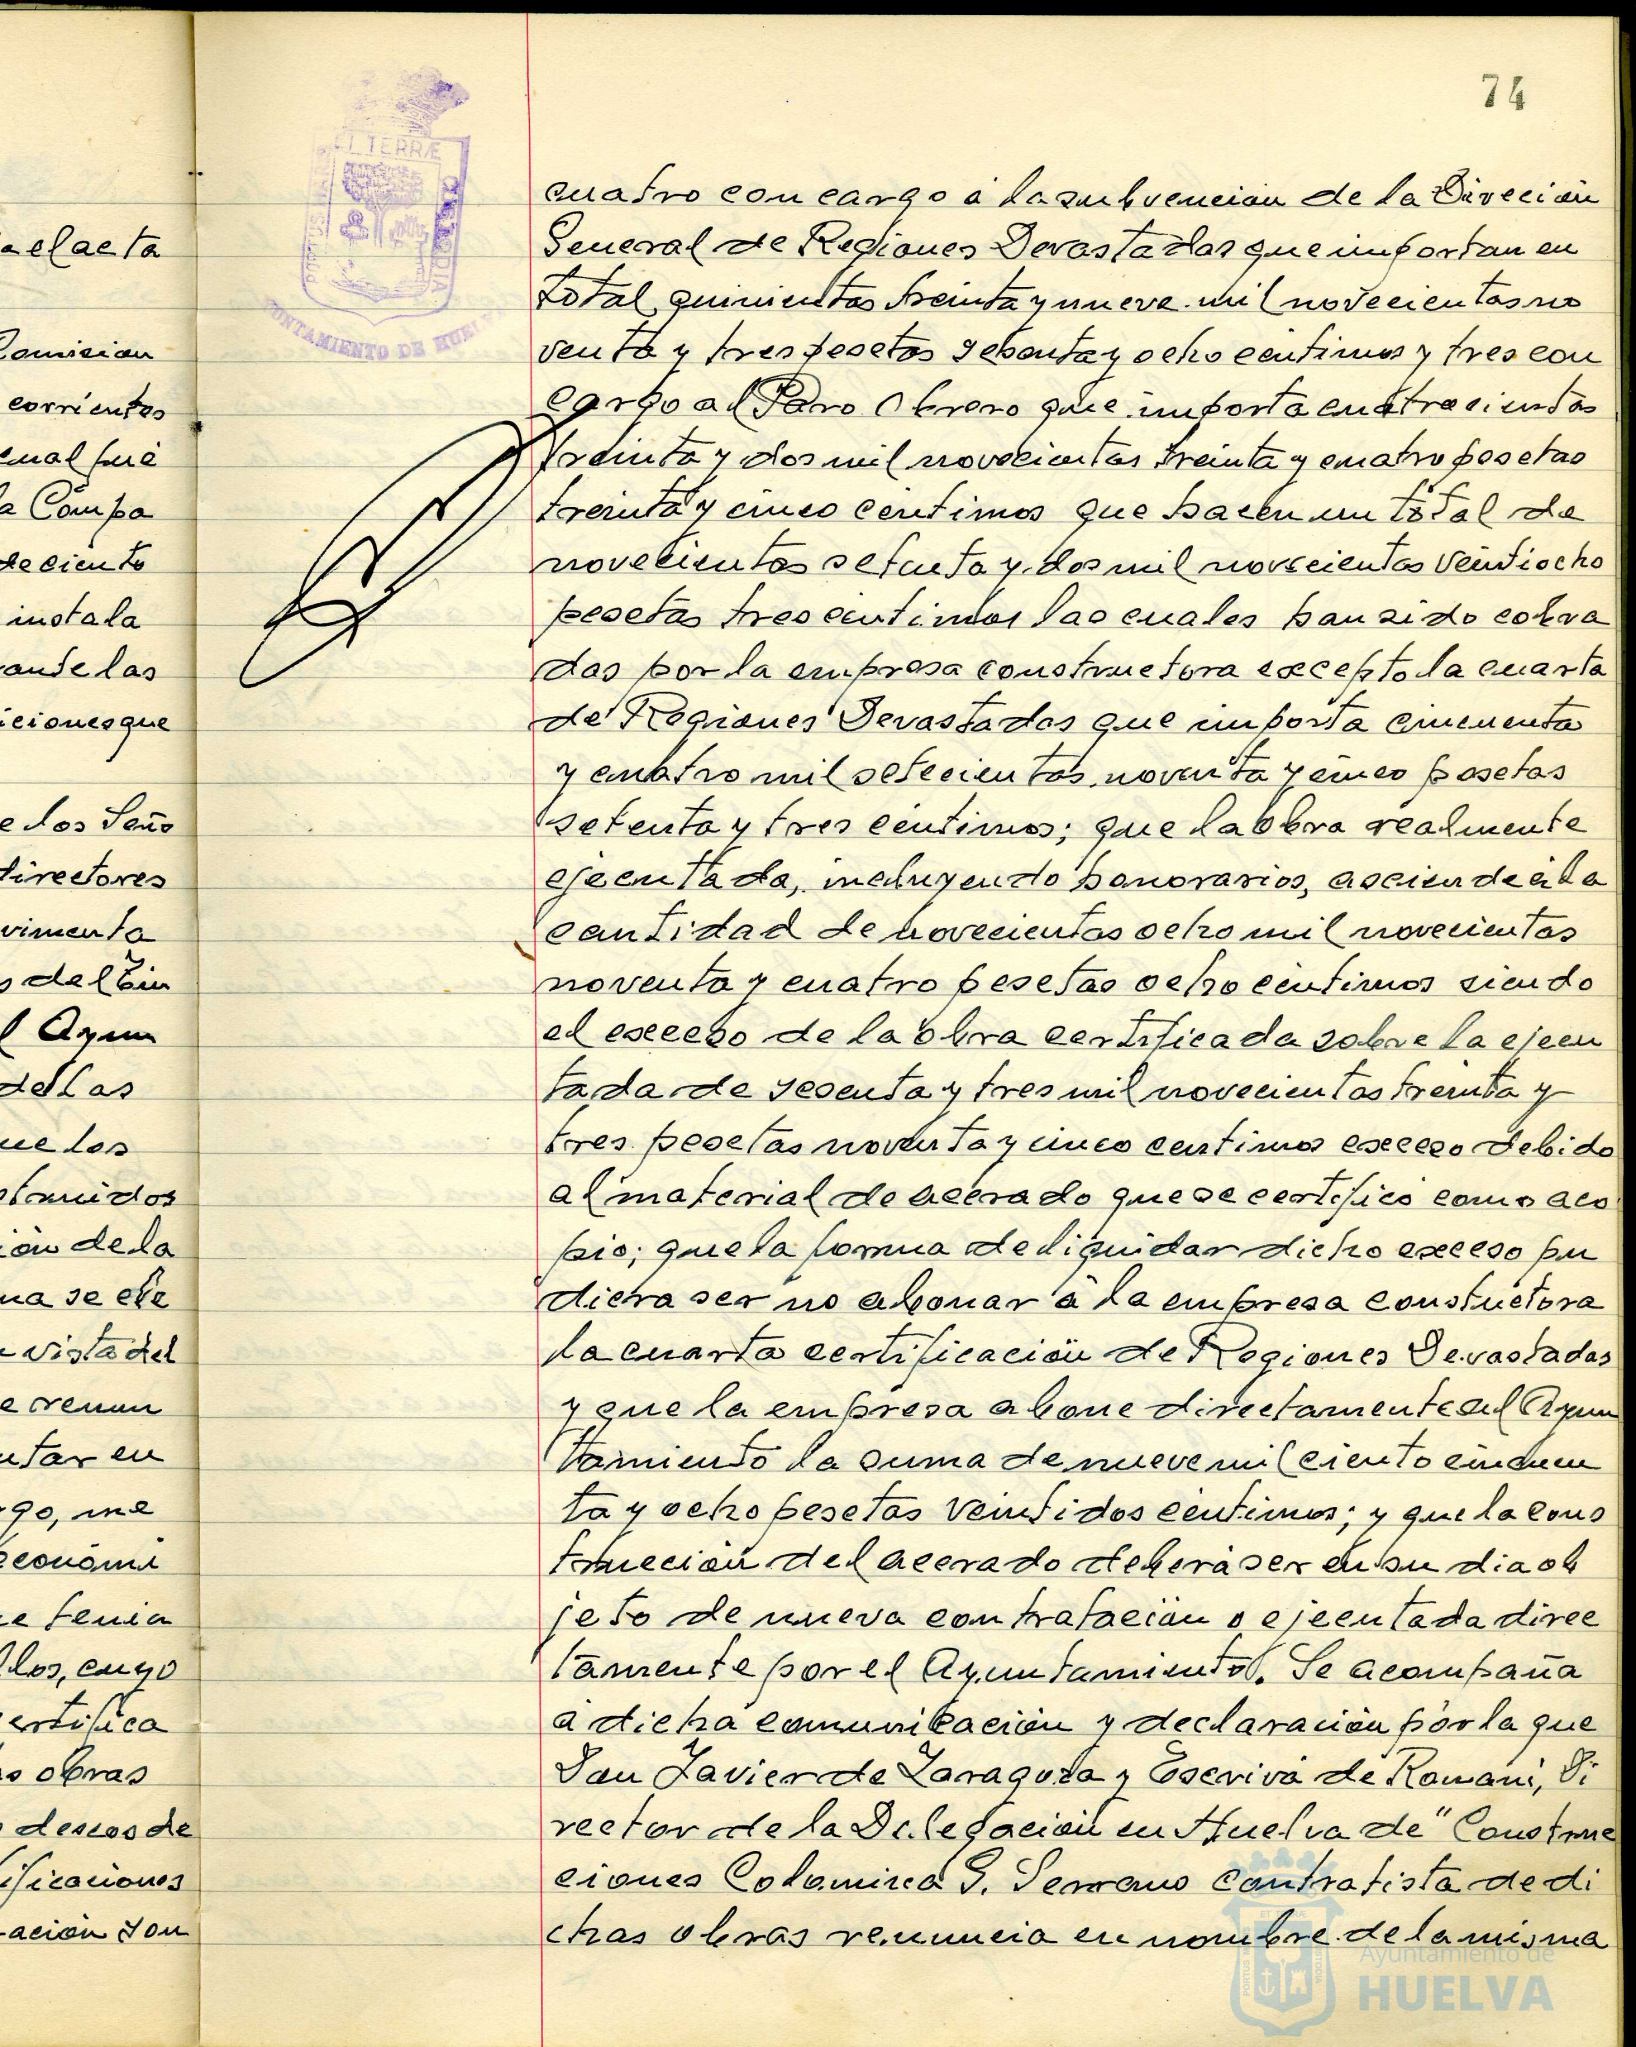 74
cuatro con cargo á la subvención de la Direción
General de Regiones Devastadas que importan en
total quinientas treinta y nueve mil novecientas no
venta y tres pesetas sesenta y ocho centimos y tres con
cargo al Paro Obrero que importa cuatrocientas
treinta y dos mil novecientas treinta y cuatro pesetas
treinta y cinco centimos que hacen un total de
novecientas setenta y dos mil novecientas veintiocho
pesetas tres centimos las cuales han sido cobra
das por la empresa constructora excepto la cuarta
de Regiones Devastadas que importa cincuenta
y cuatro mil setecientas noventa y cinco pesetas
setenta y tres centimos; que la obra realmente
ejecutada, incluyendo honorarios, asciende á la
cantidad de novecientas ocho mil novecientas
noventa y cuatro pesetas ocho centimos siendo
el exceso de la obra certificada sobre la ejecu
tada de sesenta y tres mil novecientas treinta y
tres pesetas noventa y cinco centimos exceso debido
al material de acerado que se certificó como aco
pio; que la forma de liquidar dicho exceso pu
diera ser no abonar á la empresa constuctora
la cuarta certificación de Regiones Devastadas
y que la empresa abone directamente al Ayun
tamiento la suma de nueve mil ciento cincuen
ta y ocho pesetas veintidos centimos; y que la cons
trucción del acerado deberá ser en su dia ob
jeto de nueva contratación o ejecutada direc
tamente por el Ayuntamiento. Se acompaña
á dicha comunicación y declaración por la que
Don Javier de Zaragoza y Escrivá de Romaní, Di
rector de la Delegación en Huelva de "Construc
ciones Colomina G. Serrano contratista de di
chas obras renuncia en nombre de la misma
a el acta
Comision
corrientes
cual fué
la Compa
de ciento
instala
ante las
iciones que
e los Seño
directores
vimenta
del
l Ayun
de las
ue los
struidos
ión de la
ma se ele
vista del
e renun
utar en
go, me
económi
e tenia
los, cuyo
ertifica
s obras
deseos de
ificaciones
ación son
AYUNTAMIENTO DE HUELVA
Ayuntamiento de
HUELVA